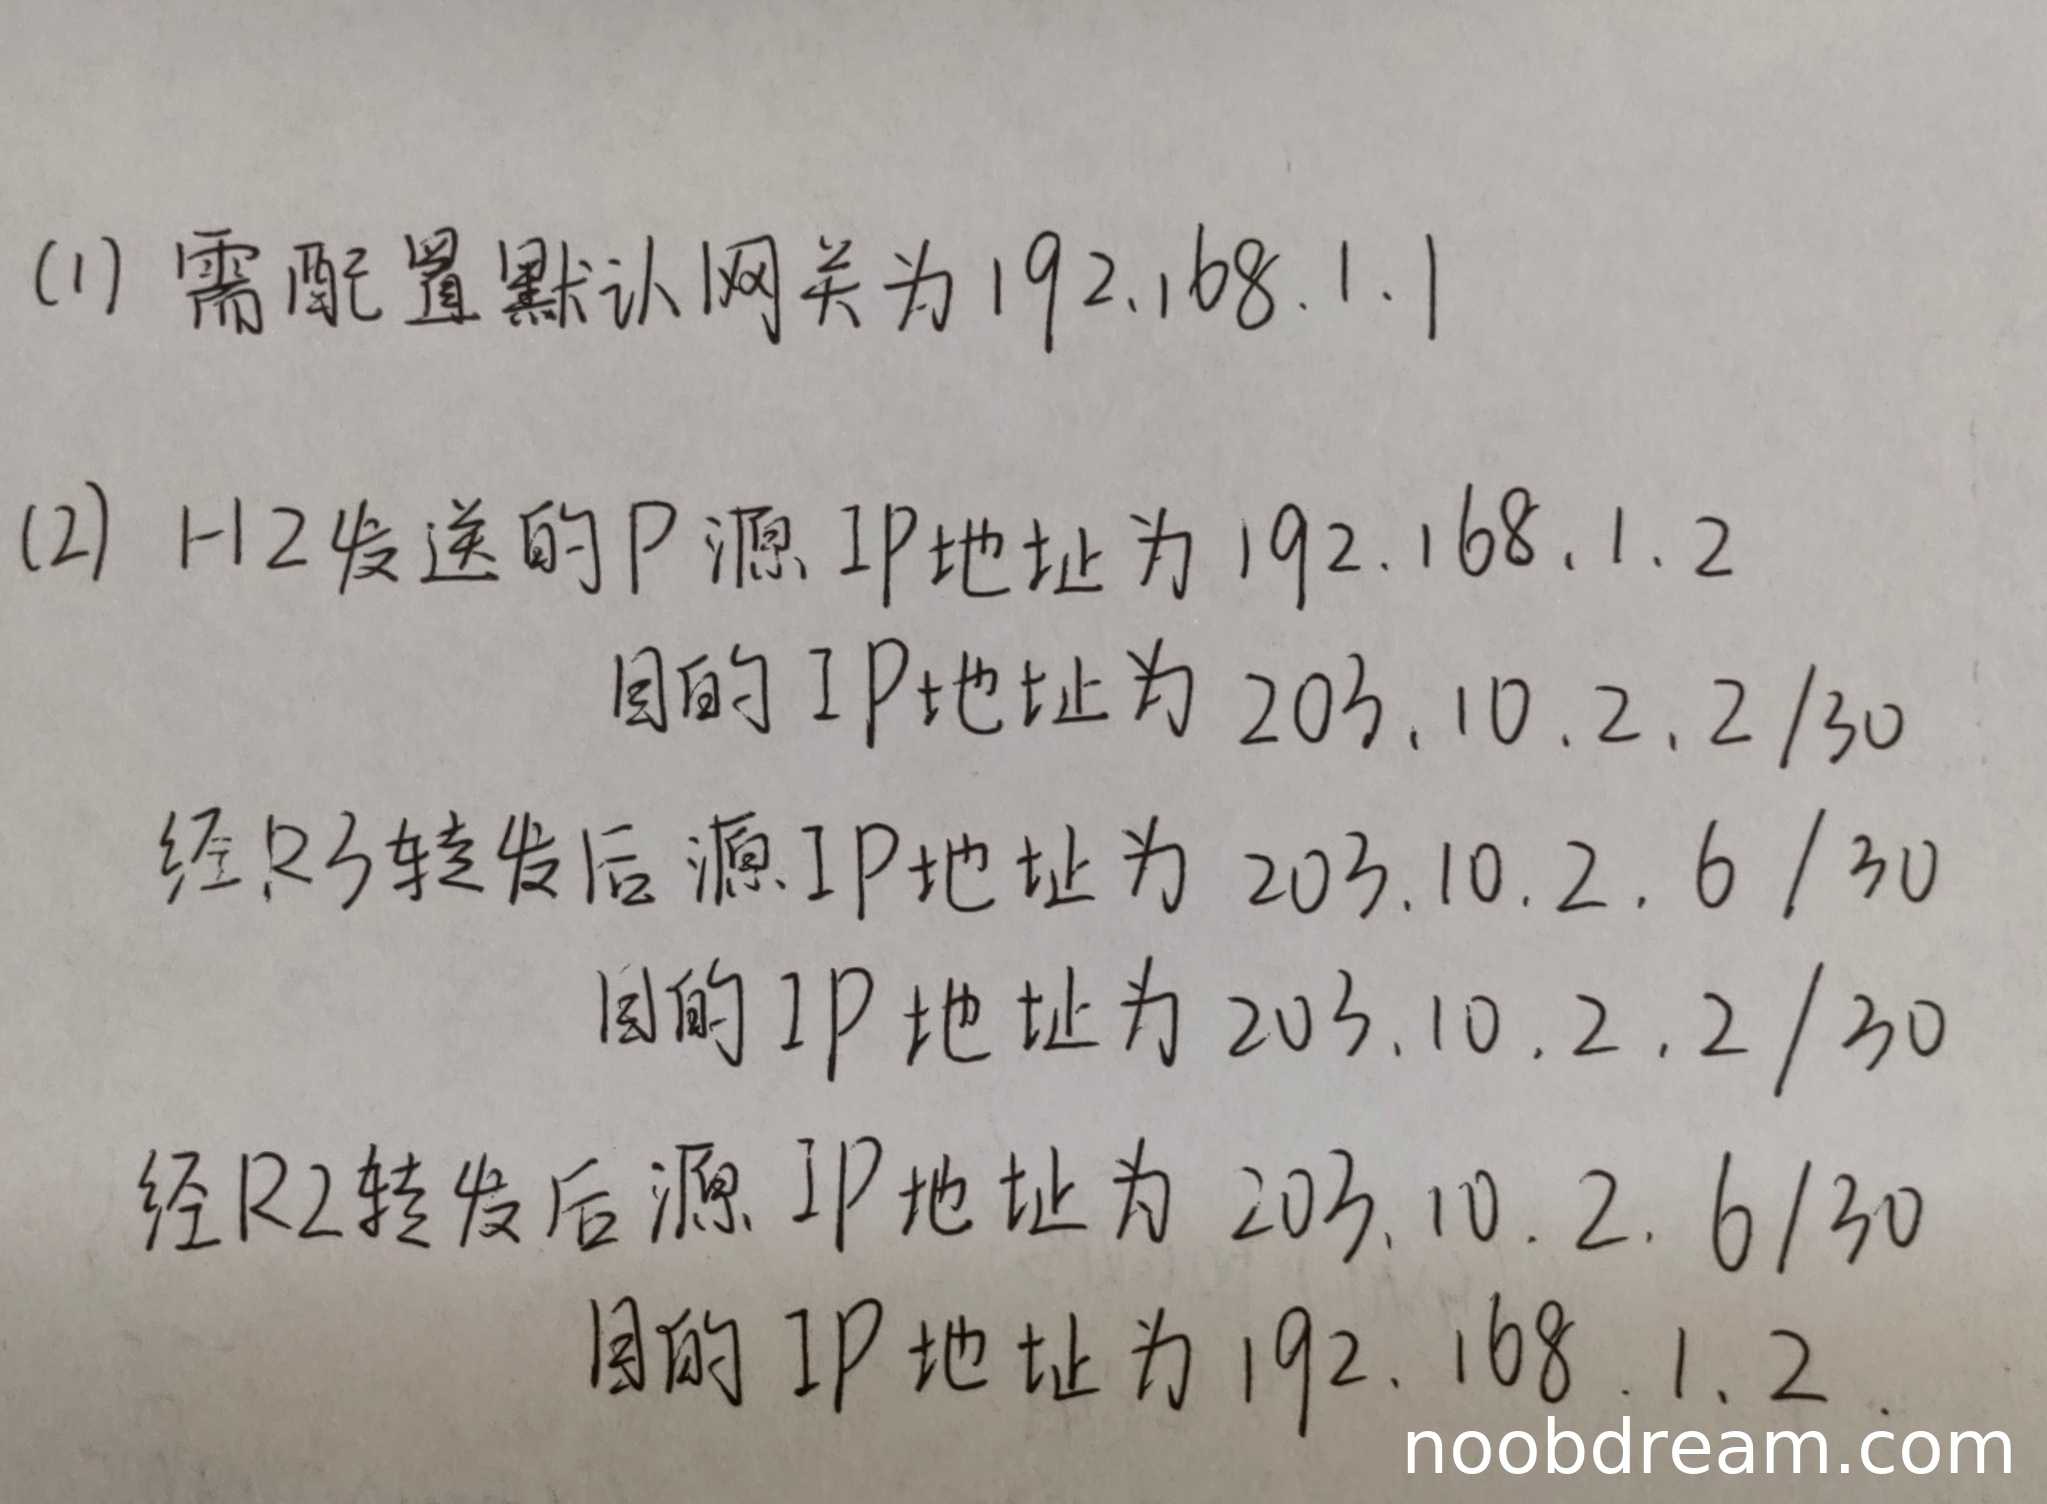 (1) 需配置默认网关为192.168.1.1
(2) H2发送的P源IP地址为192.168.1.2
目的IP地址为203.10.2.2/30
经R3转发后源IP地址为203.10.2.6/30
目的IP地址为203.10.2.2/30
经R2转发后源IP地址为203.10.2.6/30
目的IP地址为192.168.1.2.
noobdream.com